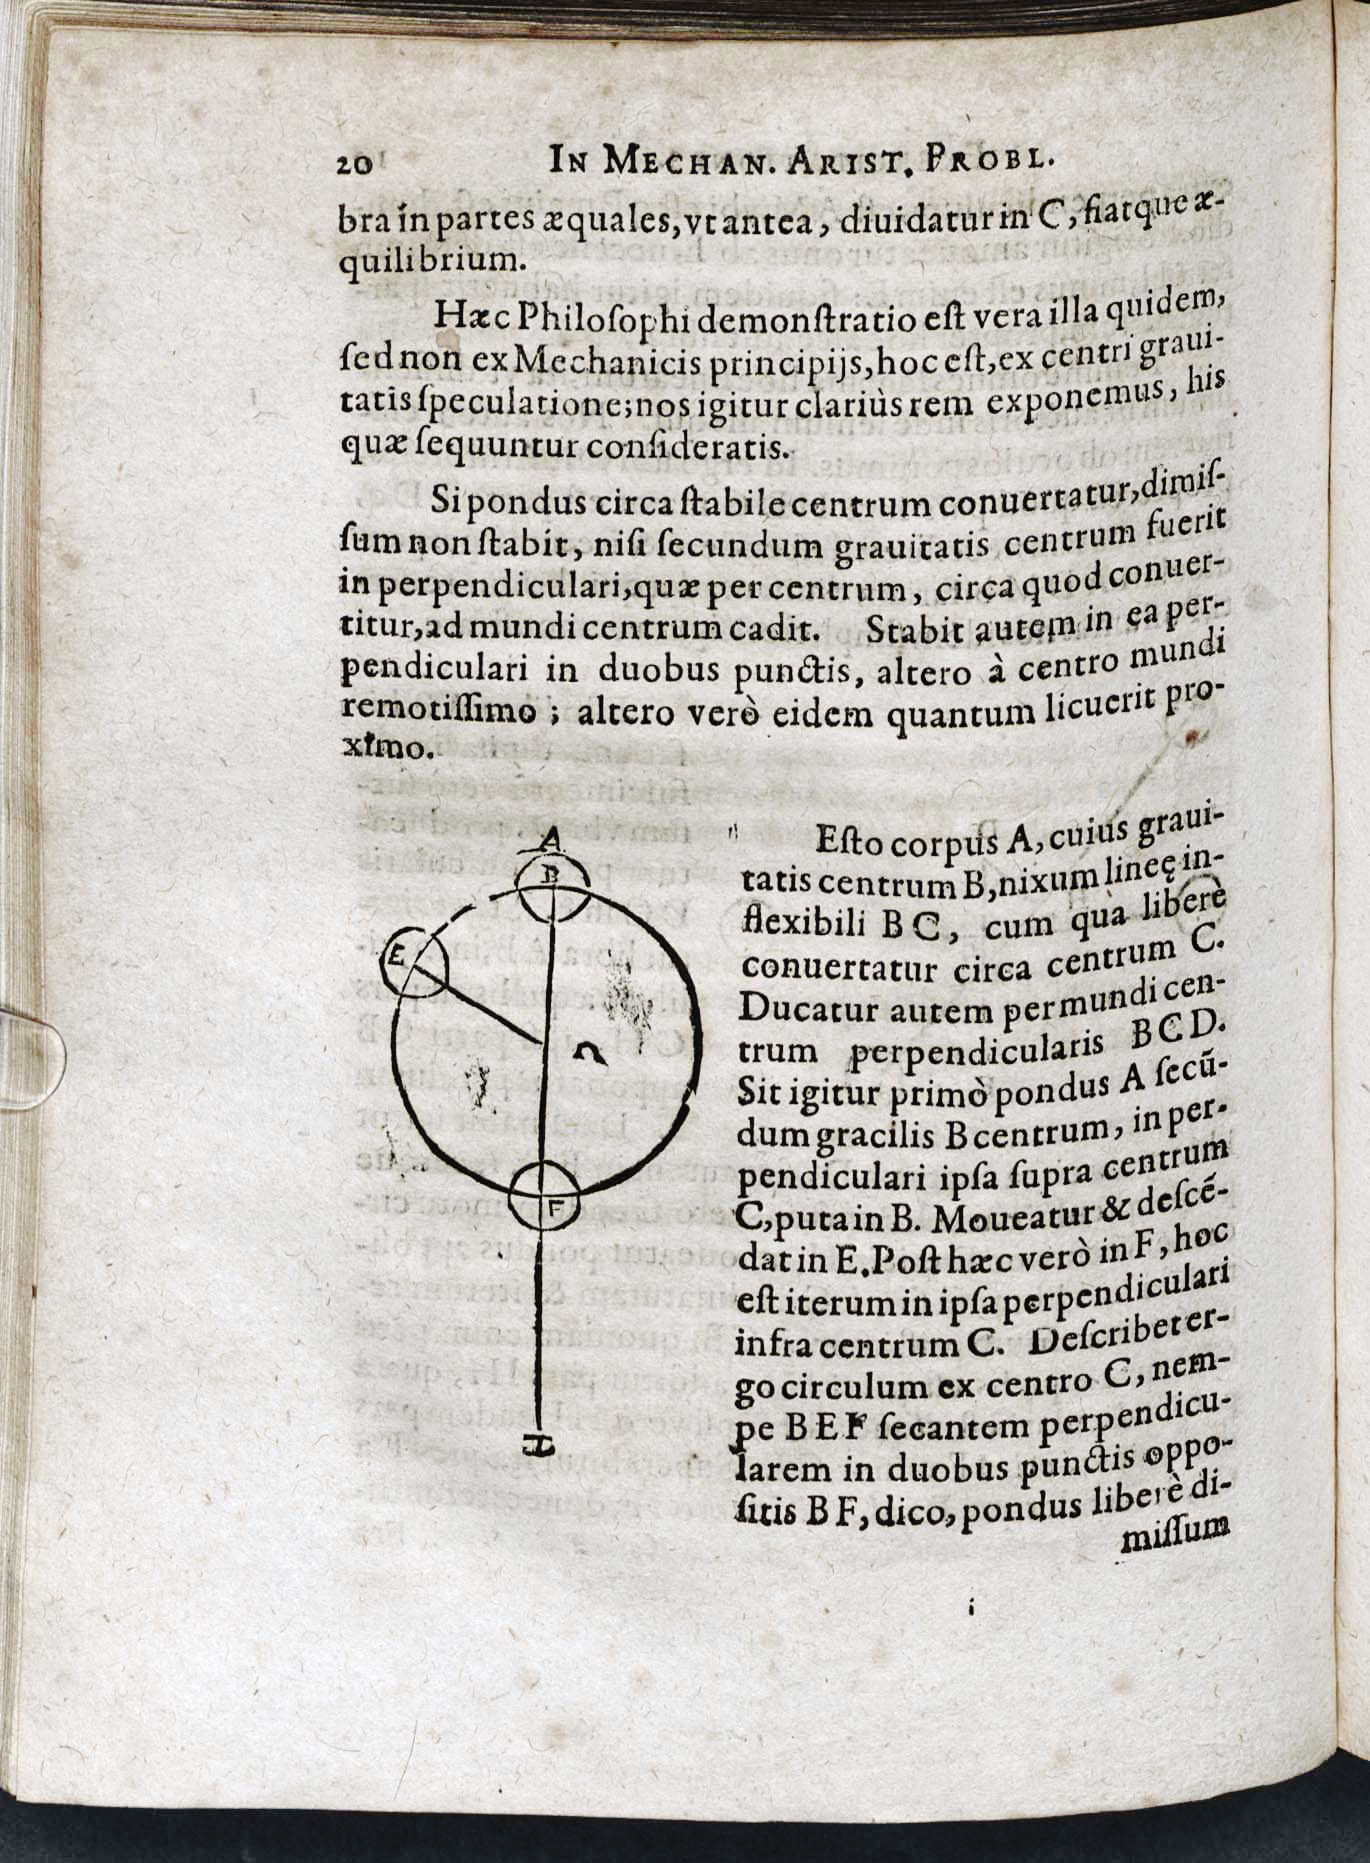 20 IN MECHAN. ARIST. PROBL.
bra in partes æquales, vt antea, diuidatur in C, fiatque æ-
quilibrium.
Hæc Philoſophi demonſtratio eſt vera illa quidem,
ſed non ex Mechanicis principijs, hoc eſt, ex centri graui-
tatis ſpeculatione; nos igitur clariùs rem exponemus, his
quæ ſequuntur conſideratis.
Si pondus circa ſtabile centrum conuertatur, dimiſ-
ſum non ſtabit, niſi ſecundum grauitatis centrum fuerit
in perpendiculari, quæ per centrum, circa quod conuer-
titur, ad mundi centrum cadit. Stabit autem in ea per-
pendiculari in duobus punctis, altero à centro mundi
remotiſſimo; altero verò eidem quantum licuerit pro-
ximo.
A
B
E
C
F
D
Eſto corpus A, cuius graui-
tatis centrum B, nixum lineę in-
flexibili B C, cum qua liberè
conuertatur circa centrum C.
Ducatur autem per mundi cen-
trum perpendicularis B C D.
Sit igitur primò pondus A ſecū-
dum gracilis B centrum, in per-
pendiculari ipſa ſupra centrum
C, puta in B. Moueatur & deſcē-
dat in E. Poſt hæc verò in F, hoc
eſt iterum in ipſa perpendiculari
infra centrum C. Deſcribet er-
go circulum ex centro C, nem-
pe B E F ſecantem perpendicu-
larem in duobus punctis oppo-
ſitis B F, dico, pondus liberè di-
miſſum